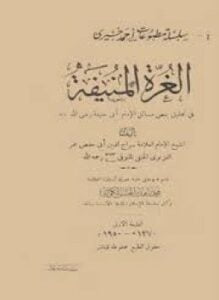 سلسلة مطبوعات أحمد خيري
الغرة المنيفة
في تحقيق بعض مسائل الإمام أبي حنيفة رضي الله عنه
تأليف
الشيخ الإمام العلامة سراج الدين أبي حفص عمر
الغزنوي الحنفي المتوفى رحمه الله
محمد زاهد الكوثري
الطبعة الأولى
١٣٧٠ - ١٩٥٠
حقوق الطبع محفوظة للناشر